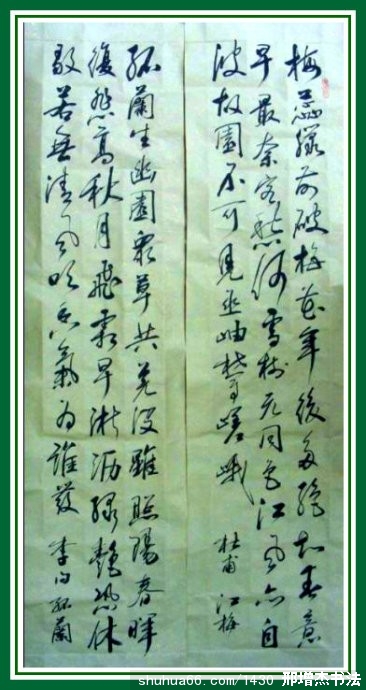 梅蕊臘前破梅花年後多絕知春意
早最奈客愁何雪樹元同色江風亦自
波故園不可見巫岫鬱嵯峨 杜甫 江梅
孤蘭生幽園衆草共蕪沒雖照陽春暉
復悲高秋月飛霜早淅瀝緑艷恐休
歇若無清風吹香氣為誰發 李白孤蘭
shuhua66.com/1430 邢增杰书法